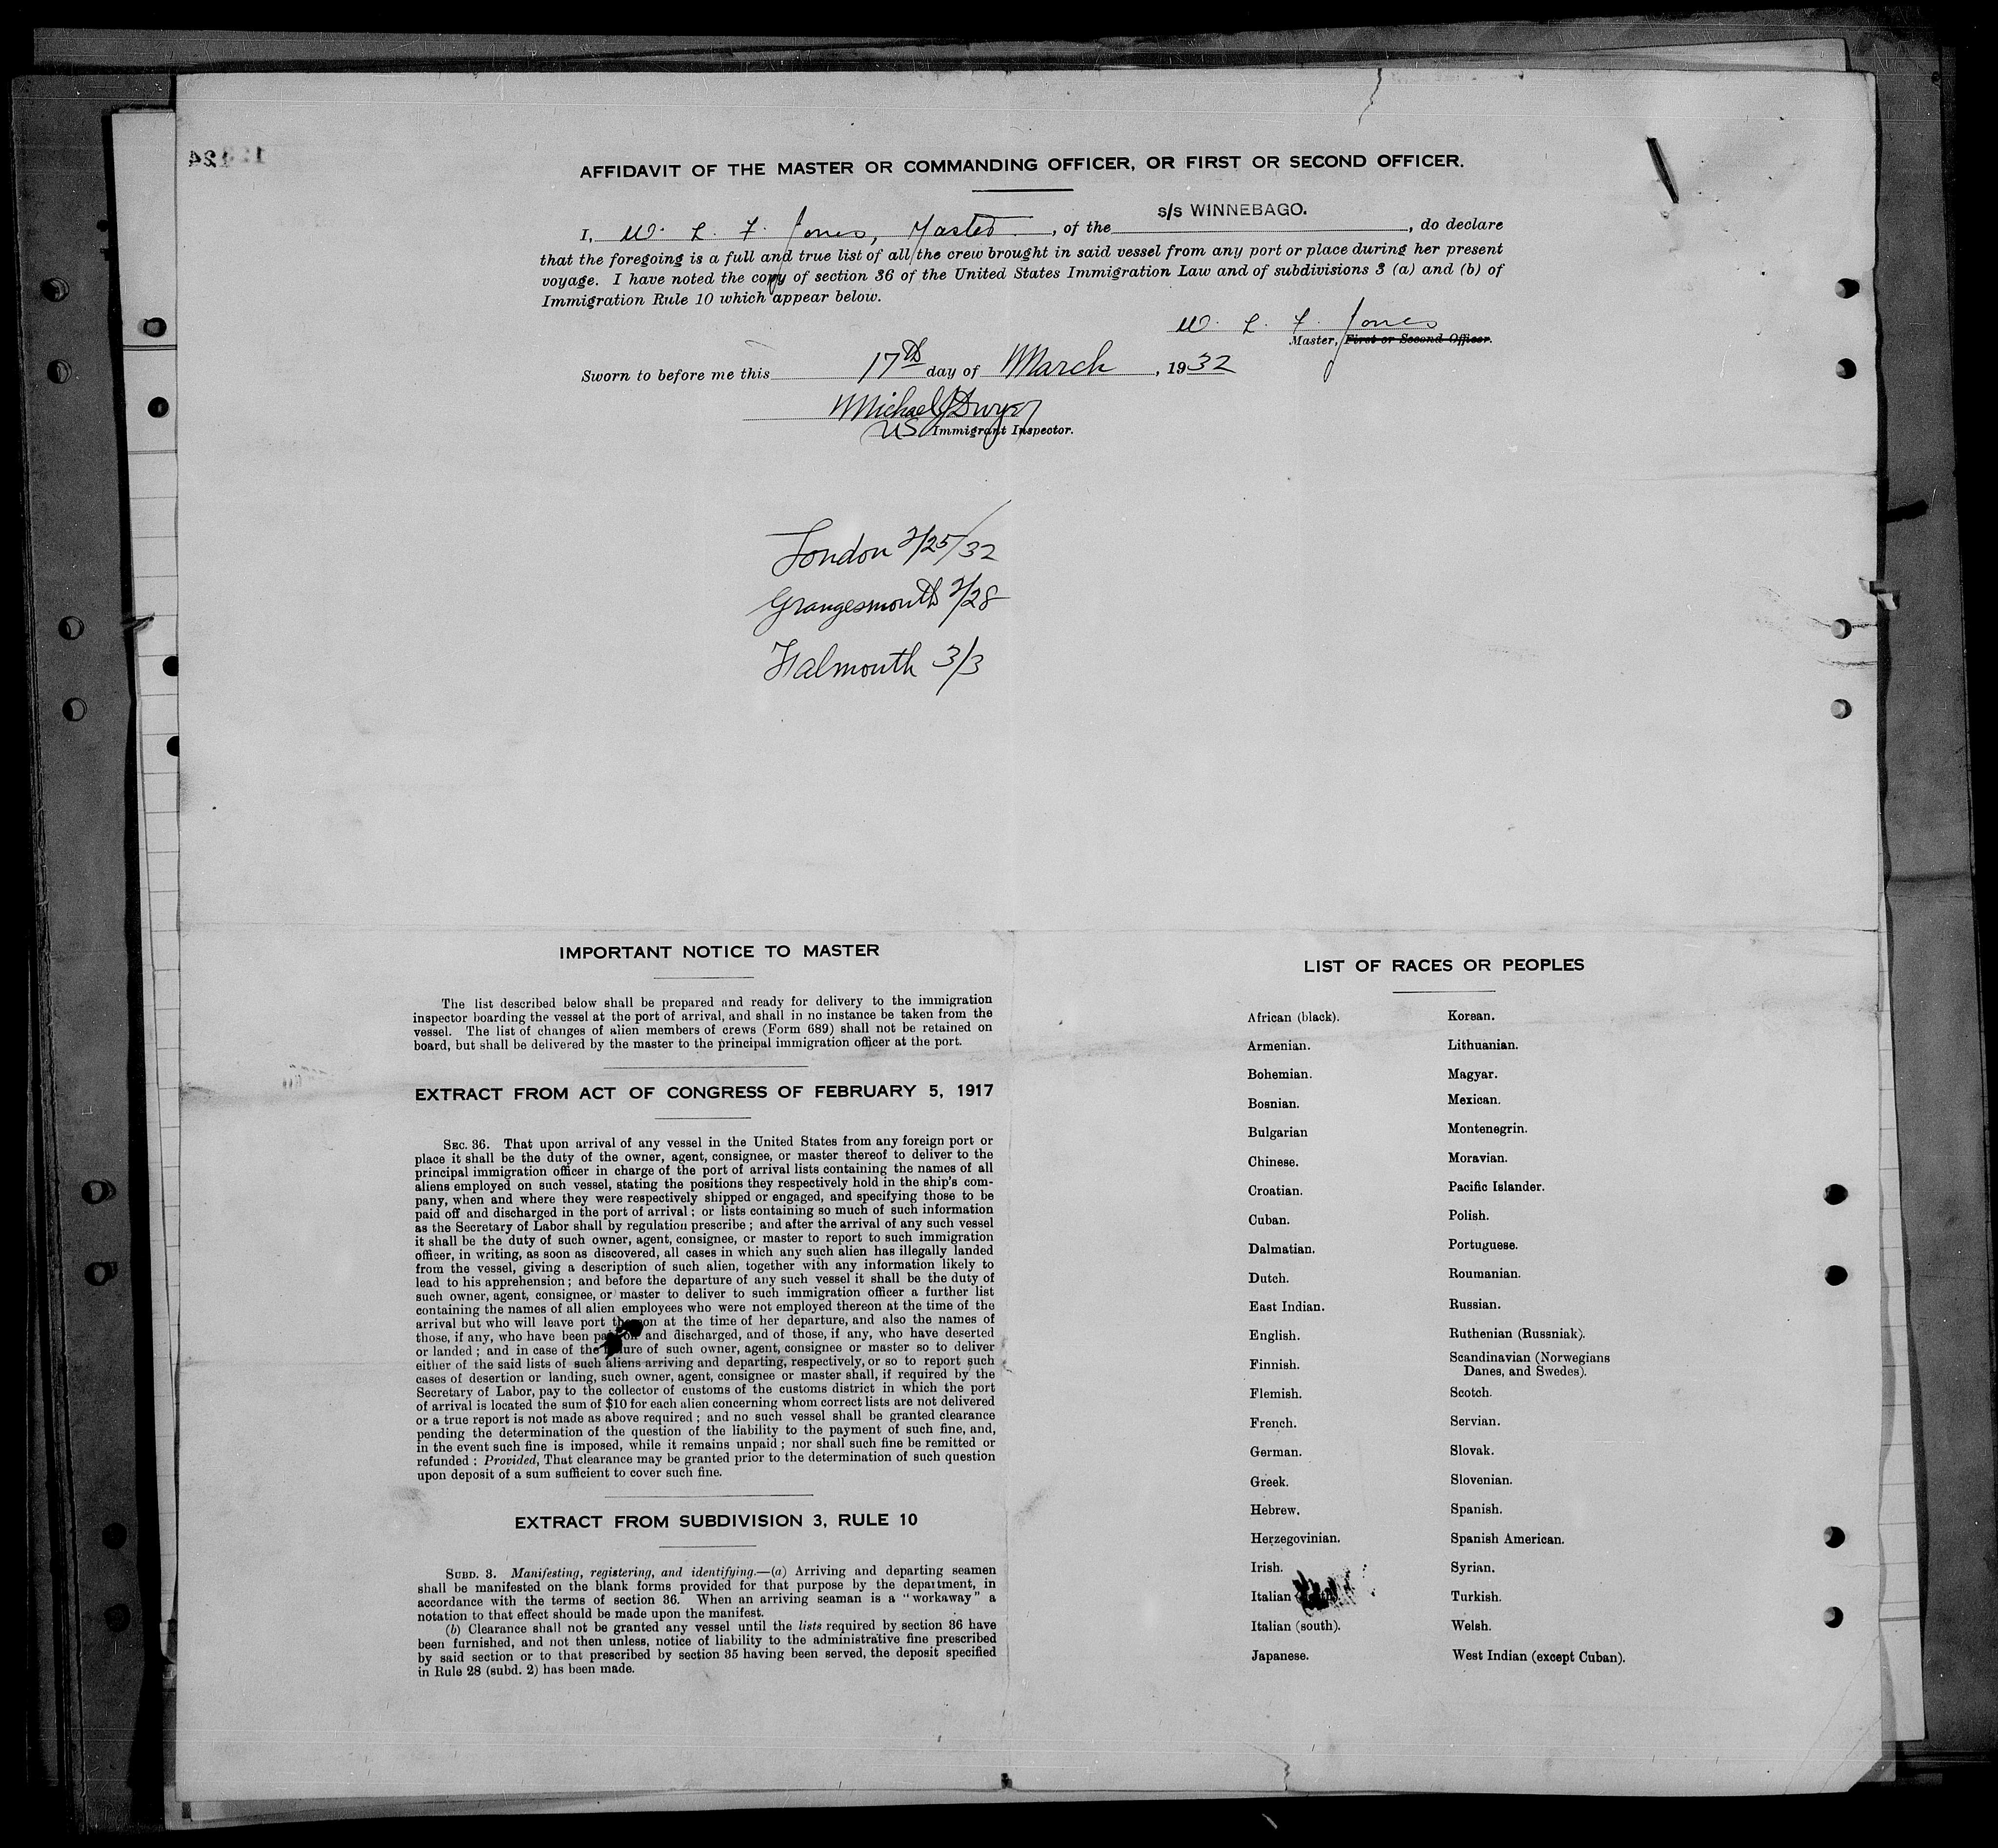 AFFIDAVIT OF THE MASTER OR COMMANDING OFFICER, OR FIRST OR SECOND OFFICER.
s/s WINNEBAGO.
I, W. L. F. Jones, Master, of the , do declare
that the foregoing is a full and true list of all the crew brought in said vessel from any port or place during her present
voyage. I have noted the copy of section 36 of the United States Immigration Law and of subdivisions 3 (a) and (b) of
Immigration Rule 10 which appear below.
W. L. F. Jones
Master, First or Second Officer.
Sworn to before me this 17th day of March, 1932
Michael J Dwyer
US Immigrant Inspector.
London 2/25/32
Grangesmouth 2/28
Falmouth 3/3
IMPORTANT NOTICE TO MASTER
The list described below shall be prepared and ready for delivery to the immigration
inspector boarding the vessel at the port of arrival, and shall in no instance be taken from the
vessel. The list of changes of alien members of crews (Form 689) shall not be retained on
board, but shall be delivered by the master to the principal immigration officer at the port.
EXTRACT FROM ACT OF CONGRESS OF FEBRUARY 5, 1917
SEC. 36. That upon arrival of any vessel in the United States from any foreign port or
place it shall be the duty of the owner, agent, consignee, or master thereof to deliver to the
principal immigration officer in charge of the port of arrival lists containing the names of all
aliens employed on such vessel, stating the positions they respectively hold in the ship's com-
pany, when and where they were respectively shipped or engaged, and specifying those to be
paid off and discharged in the port of arrival; or lists containing so much of such information
as the Secretary of Labor shall by regulation prescribe; and after the arrival of any such vessel
it shall be the duty of such owner, agent, consignee, or master to report to such immigration
officer, in writing, as soon as discovered, all cases in which any such alien has illegally landed
from the vessel, giving a description of such alien, together with any information likely to
lead to his apprehension; and before the departure of any such vessel it shall be the duty of
such owner, agent, consignee, or master to deliver to such immigration officer a further list
containing the names of all alien employees who were not employed thereon at the time of the
arrival but who will leave port thereon at the time of her departure, and also the names of
those, if any, who have been paid off and discharged, and of those, if any, who have deserted
or landed; and in case of the failure of such owner, agent, consignee or master so to deliver
either of the said lists of such aliens arriving and departing, respectively, or so to report such
cases of desertion or landing, such owner, agent, consignee or master shall, if required by the
Secretary of Labor, pay to the collector of customs of the customs district in which the port
of arrival is located the sum of $10 for each alien concerning whom correct lists are not delivered
or a true report is not made as above required; and no such vessel shall be granted clearance
pending the determination of the question of the liability to the payment of such fine, and,
in the event such fine is imposed, while it remains unpaid; nor shall such fine be remitted or
refunded: Provided, That clearance may be granted prior to the determination of such question
upon deposit of a sum sufficient to cover such fine.
EXTRACT FROM SUBDIVISION 3, RULE 10
SUBD. 3. Manifesting, registering, and identifying.—(a) Arriving and departing seamen
shall be manifested on the blank forms provided for that purpose by the department, in
accordance with the terms of section 36. When an arriving seaman is a "workaway" a
notation to that effect should be made upon the manifest.
(b) Clearance shall not be granted any vessel until the lists required by section 36 have
been furnished, and not then unless, notice of liability to the administrative fine prescribed
by said section or to that prescribed by section 35 having been served, the deposit specified
in Rule 28 (subd. 2) has been made.
LIST OF RACES OR PEOPLES
African (black).
Armenian.
Bohemian.
Bosnian.
Bulgarian
Chinese.
Croatian.
Cuban.
Dalmatian.
Dutch.
East Indian.
English.
Finnish.
Flemish.
French.
German.
Greek.
Hebrew.
Herzegovinian.
Irish.
Italian
Italian (south).
Japanese.
Korean.
Lithuanian.
Magyar.
Mexican.
Montenegrin.
Moravian.
Pacific Islander.
Polish.
Portuguese.
Roumanian.
Russian.
Ruthenian (Russniak).
Scandinavian (Norwegians
Danes, and Swedes).
Scotch.
Servian.
Slovak.
Slovenian.
Spanish.
Spanish American.
Syrian.
Turkish.
Welsh.
West Indian (except Cuban).